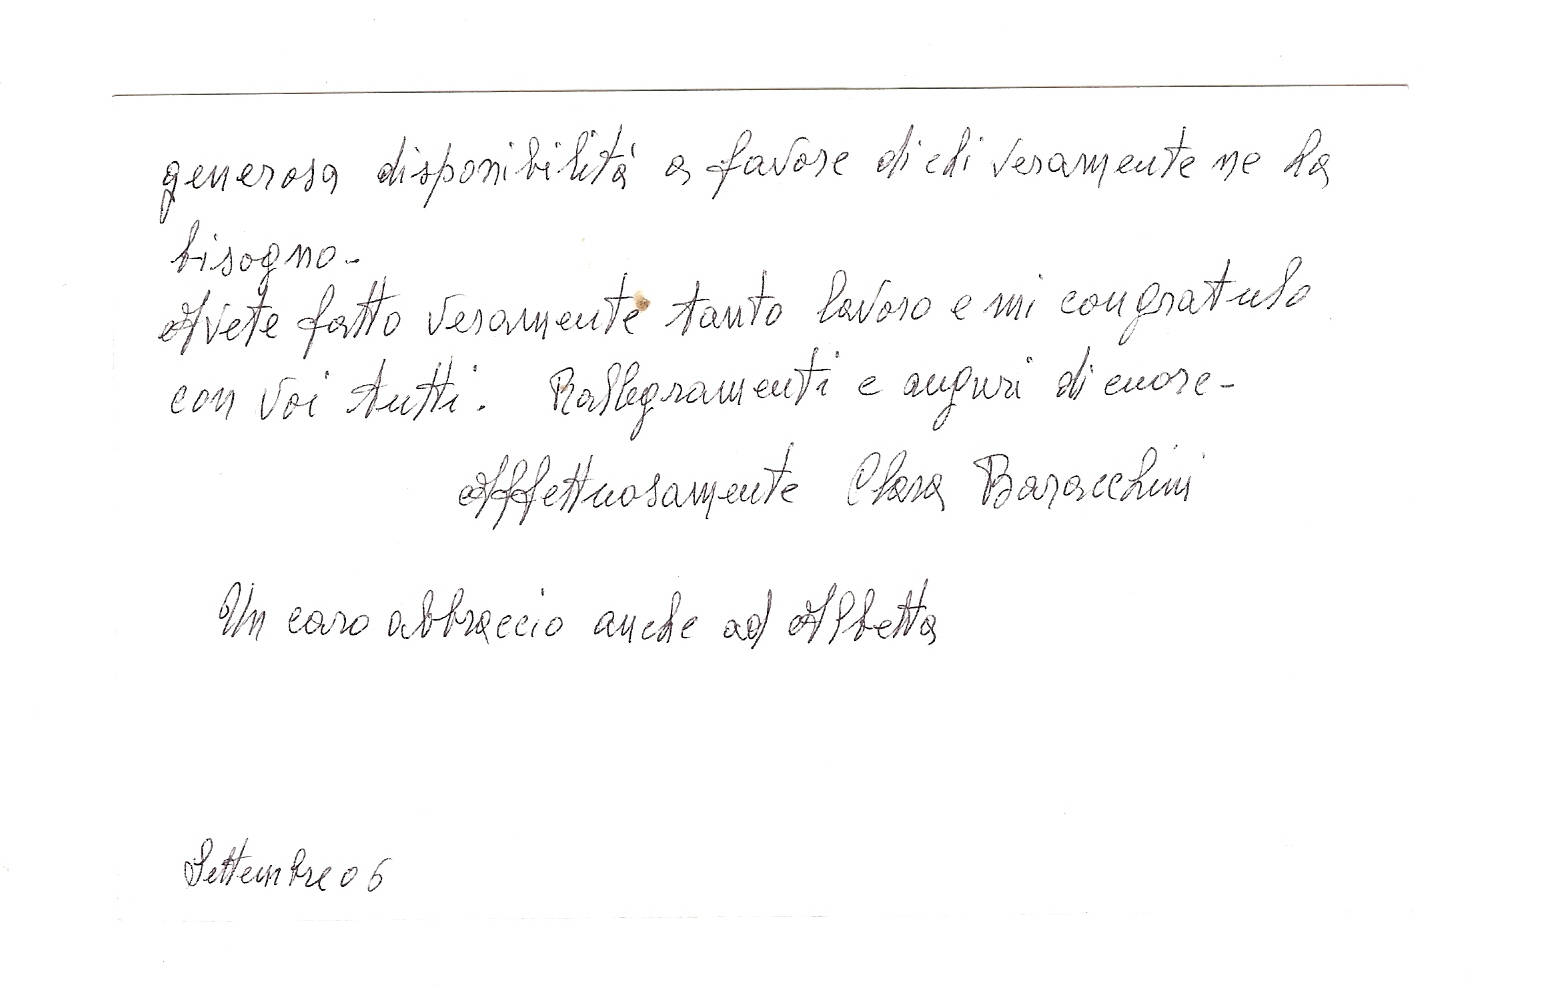 generosa disponibilità a favore di chi veramente ne ha
bisogno-
Avete fatto veramente tanto lavoro e mi congratulo
con voi tutti. Rallegramenti e auguri di cuore-
Affettuosamente Clara Baracchini
Un caro abbraccio anche ad Albetta
Settembre 06